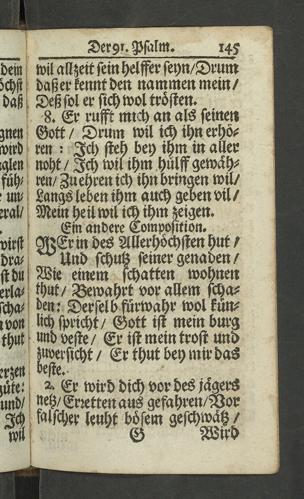 Der 91. Psalm. 145
wil allzeit sein helffer seyn/ Drum
daß er kennt den nammen mein/
Deß sol er sich wol trösten.
8. Er rufft mich an als seinen
Gott/ Drum wil ich ihn erhö-
ren: Ich steh bey ihm in aller
noht/ Ich wil ihm hülff gewäh-
ren/ Zu ehren ich ihn bringen wil/
Langs leben ihm auch geben vil/
Mein heil wil ich ihm zeigen.
Ein andere Composition.
WEr in des Allerhöchsten hut/
Und schutz seiner genaden/
Wie einem schatten wohnen
thut/ Bewahrt vor allem scha-
den: Derselb fürwahr wol kün-
lich spricht/ Gott ist mein burg
und veste/ Er ist mein trost und
zuversicht/ Er thut bey mir das
beste.
2. Er wird dich vor des jägers
netz/ Erretten aus gefahren/ Vor
falscher leuht bösem geschwätz/
G Wird